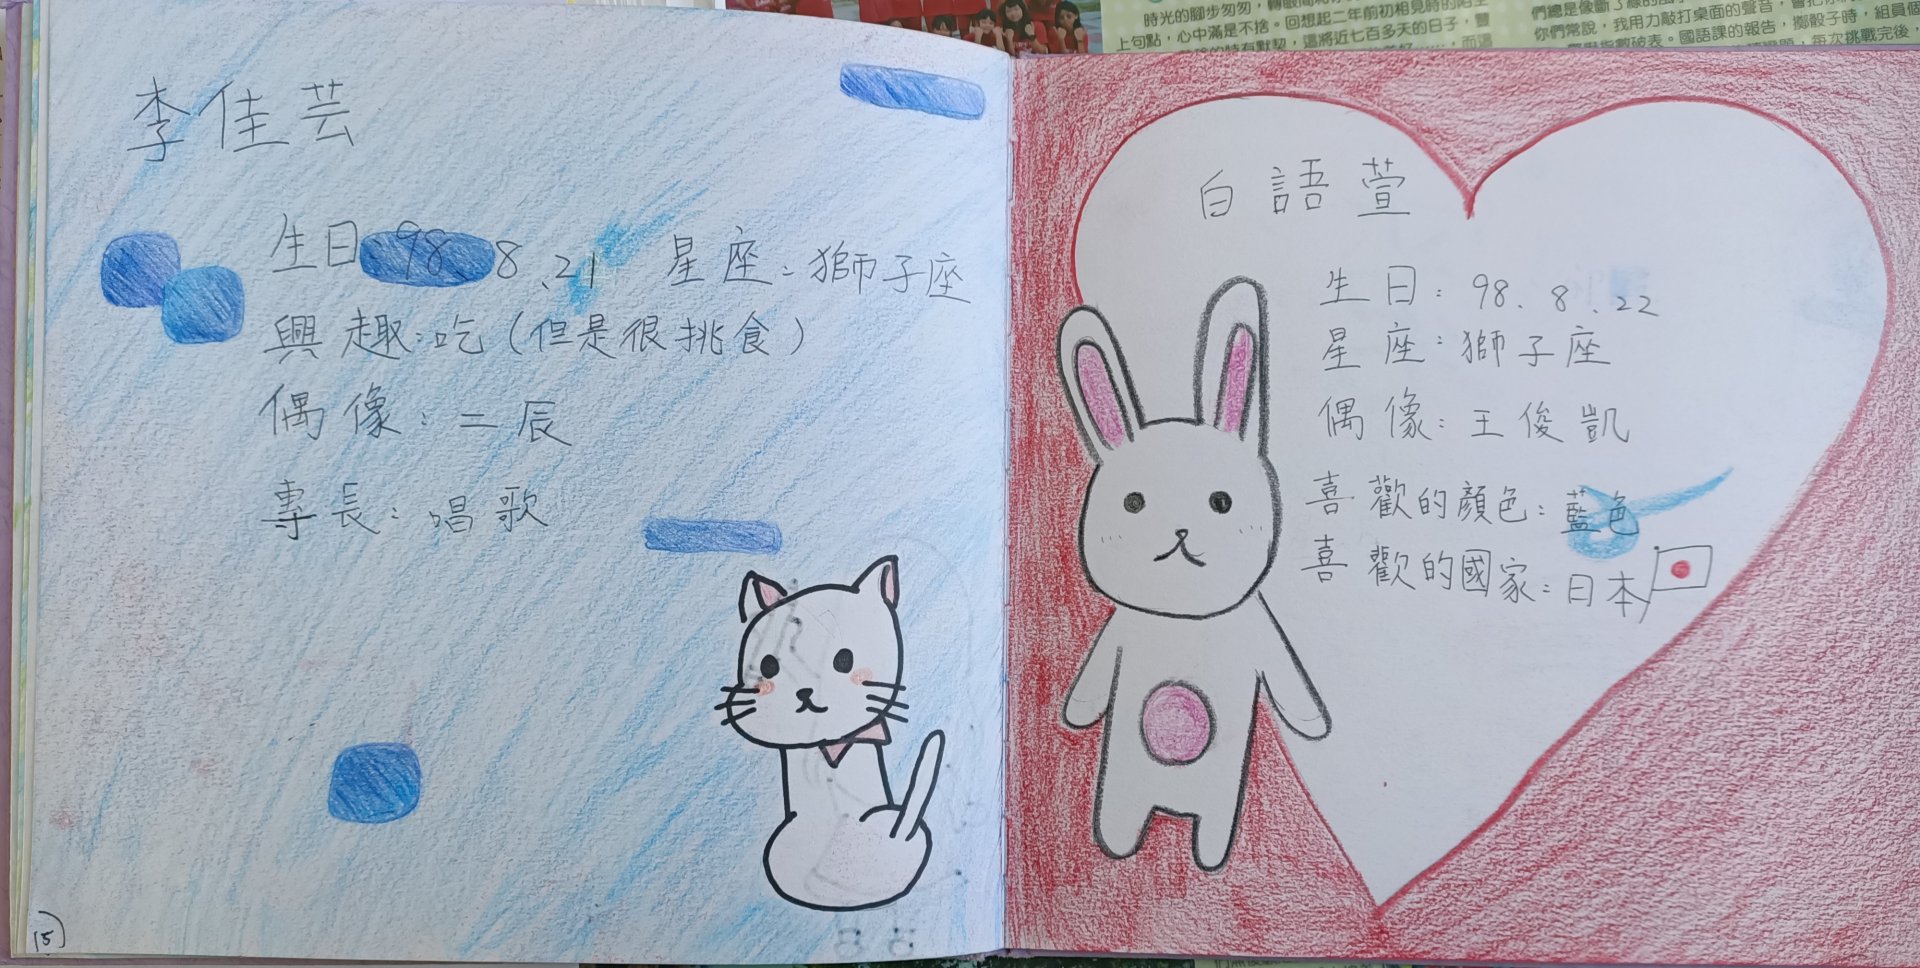 時光的腳步匆匆，轉眼間
上句點，心中滿是不捨。回想起二年前初相見時的
的特有默契，這將近七百多天的日子，豐
們總是像斷了線的
你們常說，我用力敲打桌面的聲音，
破表。國語課的報告，擲骰子時，組員個
每次挑戰完後，
李佳芸
生日：98、8、21 星座：獅子座
興趣：吃（但是很挑食）
偶像：二辰
專長：唱歌
15
白語萱
生日：98、8、22
星座：獅子座
偶像：王俊凱
喜歡的顏色：藍色
喜歡的國家：日本